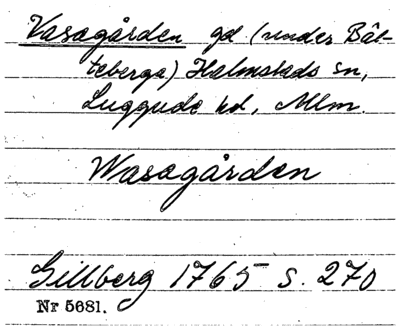 Vasagården gd (under Båt-
teberga) Halmstads sn,
Luggude hd, Mlm.
Wasagården
Gillberg 1765 s. 270
Nr 5681.